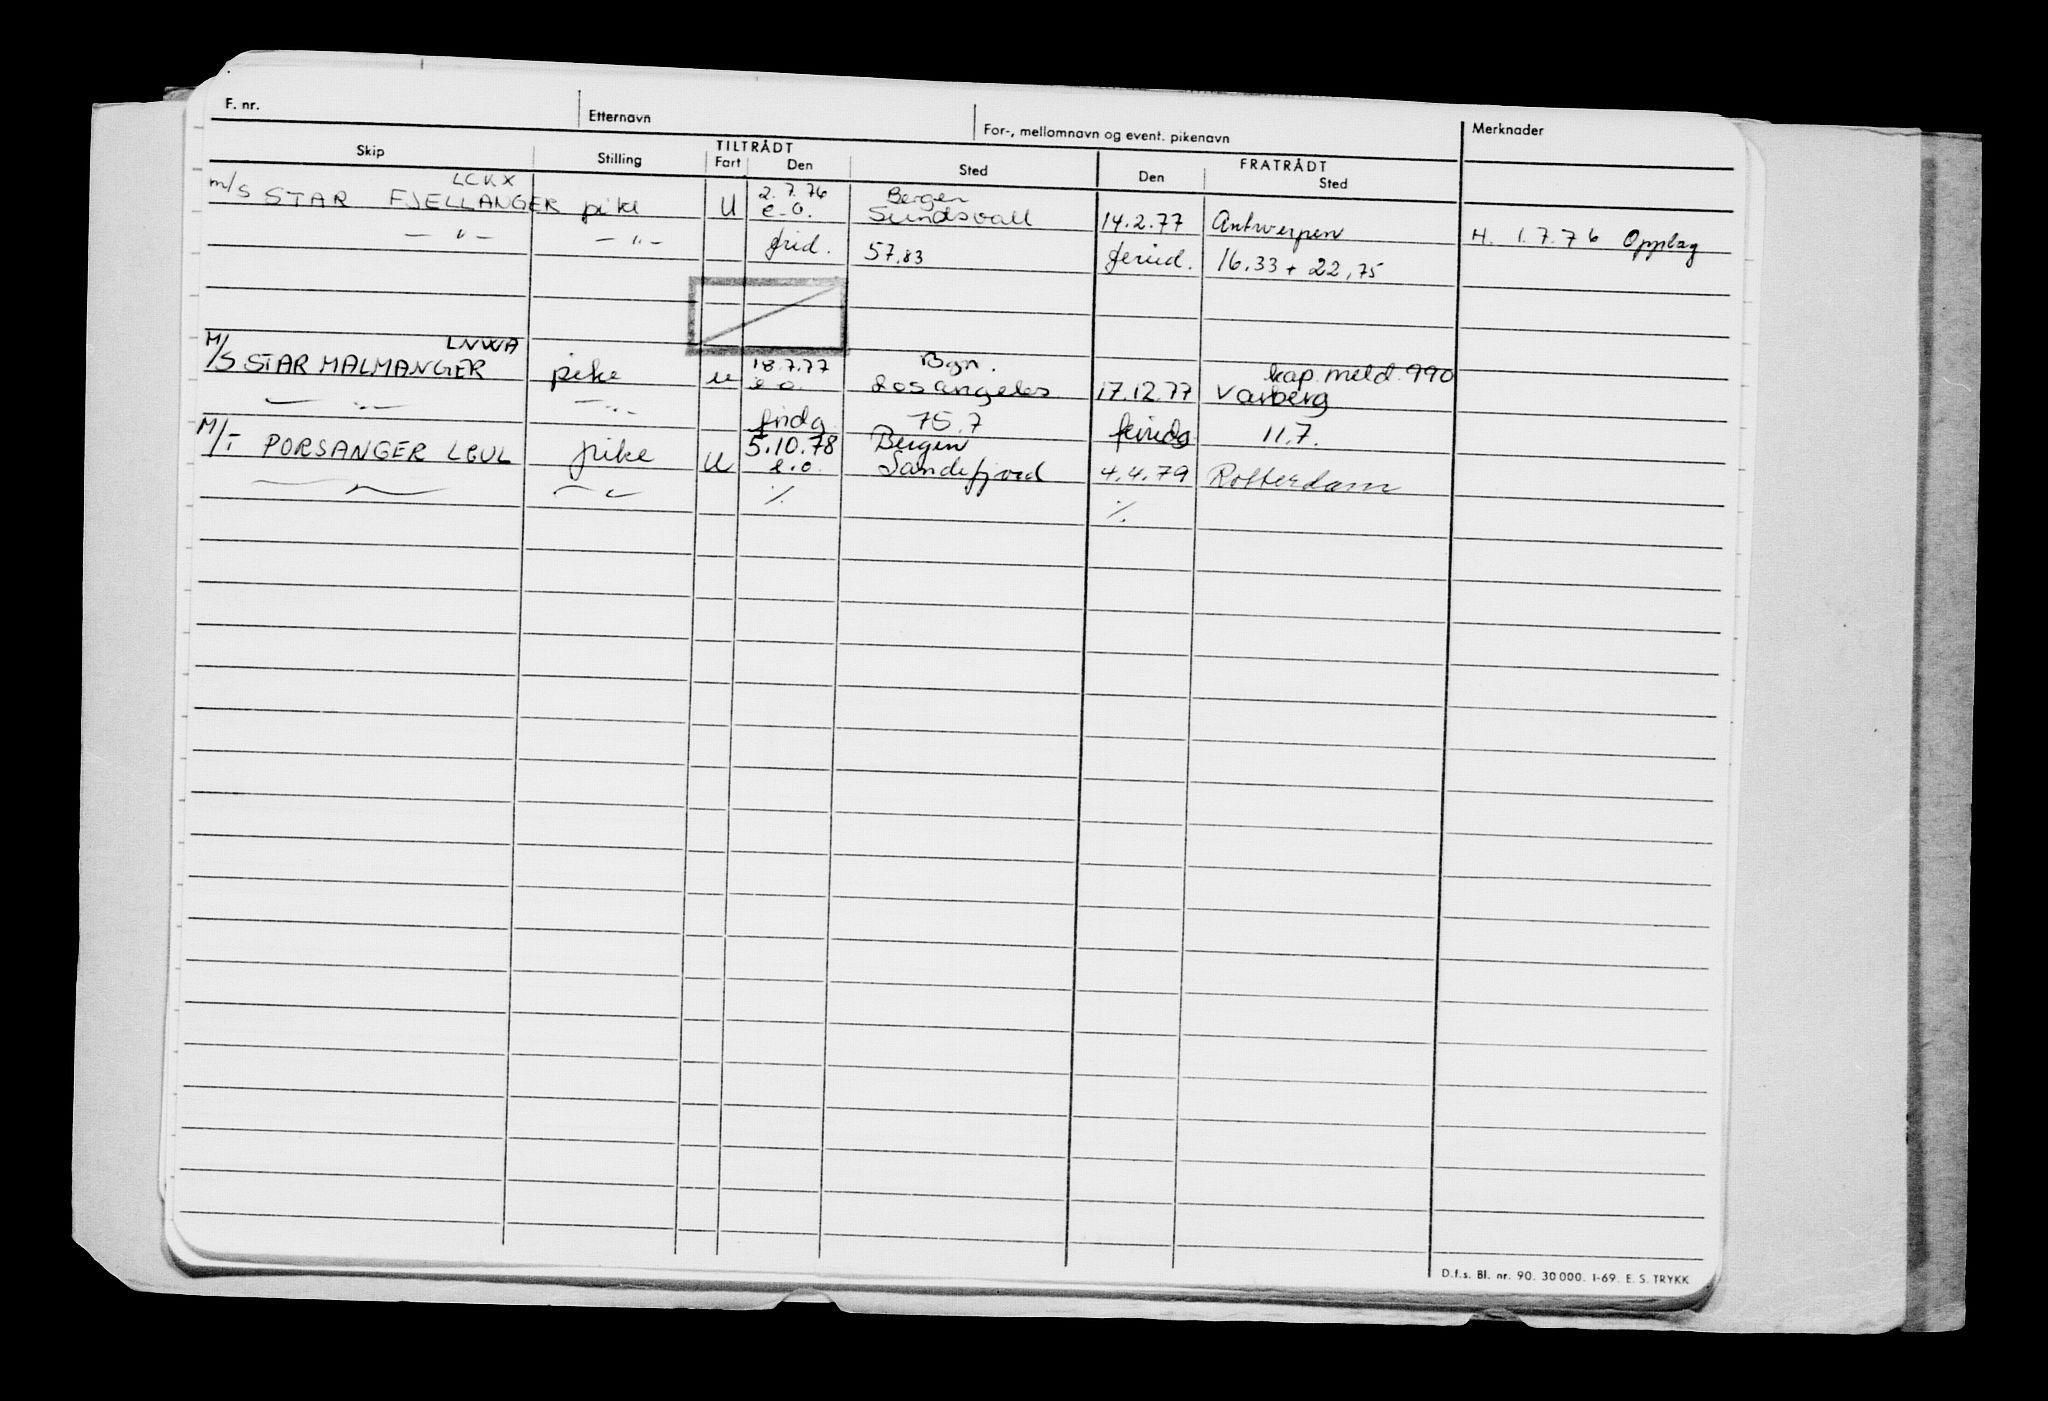 F. nr. Etternavn For-, mellomnavn og event. pikenavn Merknader
Skip Stilling TILTRÅDT Fart Den Sted FRATRÅDT Den Sted
LCKX 2.7.76 Bergen
m/s STAR FJELLANGER pike U e.o. Sundsvall 14.2.77 Antwerpen H. 1.7.76 Opplag
— " — — " — frid. 57.83 feried. 16.33 + 22,75
LNWA 18.7.77 Bgn. kap. meld. 990
M/S STAR MALMANGER pike u e.o. Los Angeles 17.12.77 Varberg
— " — — " — fridg. 75.7 ferieds 11.7.
5.10.78 Bergen
M/T PORSANGER LEUL pike U e.o. Sandefjord 4.4.79 Rotterdam
— " — — " — %. %.
D.f.s. Bl. nr. 90. 30 000. 1-69. E. S. TRYKK